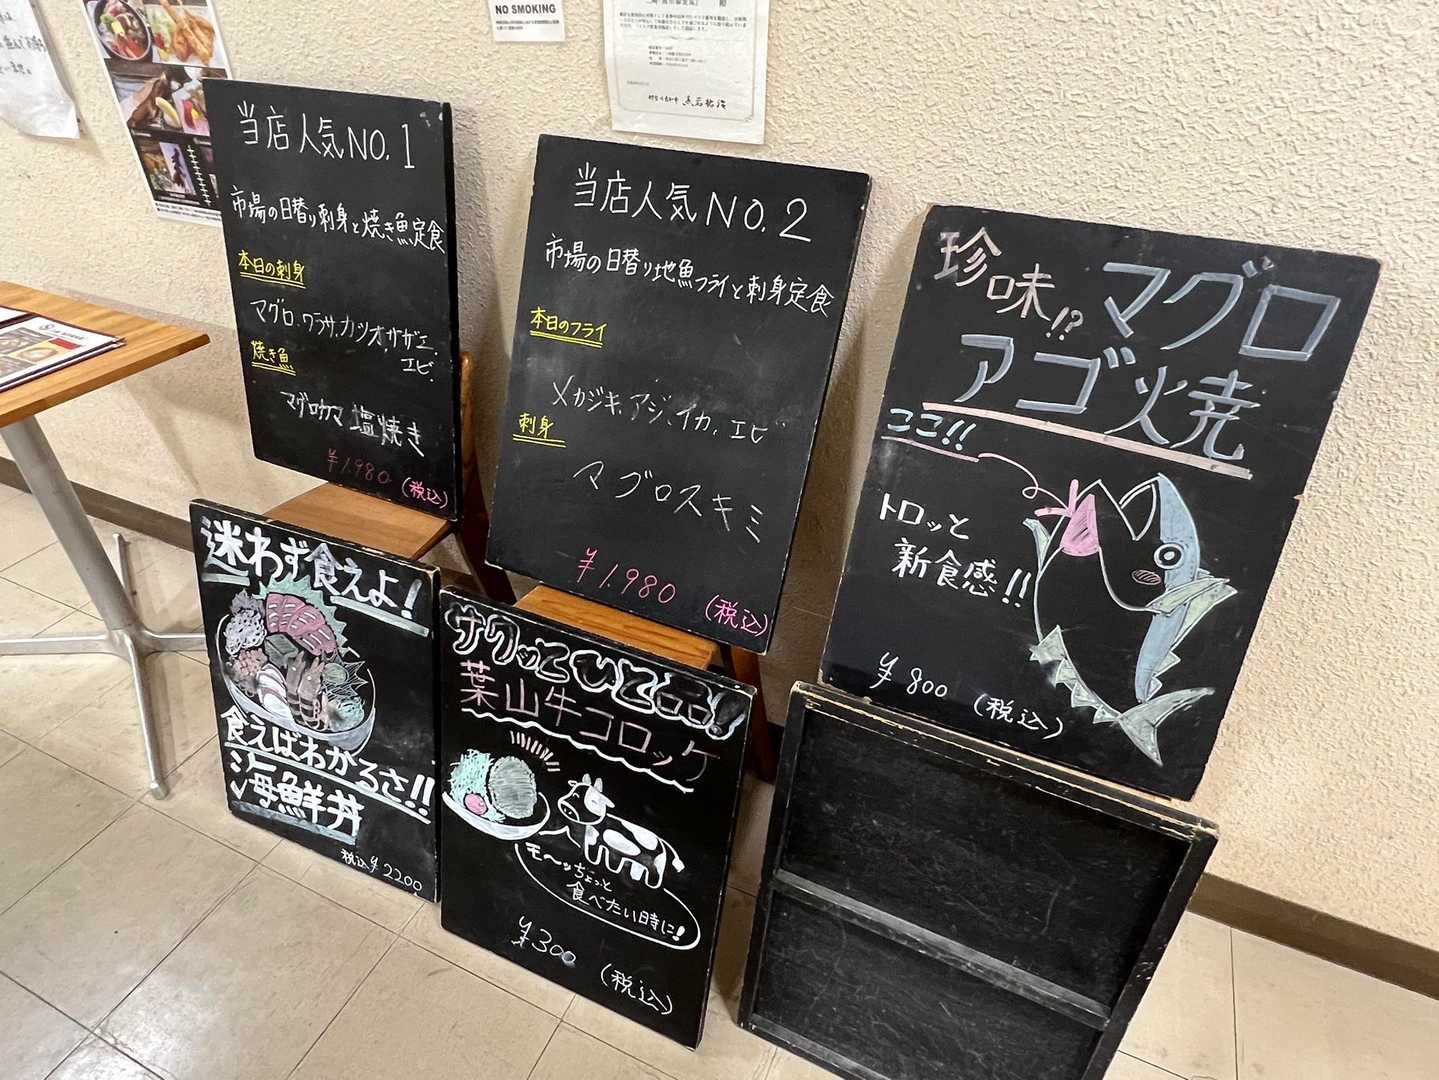 NO SMOKING
当店人気NO.1
市場の日替り刺身と焼き魚定食
本日の刺身
マグロ、ワラサ、カツオ、サザエ、
エビ、
焼き魚
マグロカマ塩焼き
¥1.980(税込)
当店人気NO.2
市場の日替り地魚フライと刺身定食
本日のフライ
メカジキ、アジ、イカ、エビ
刺身
マグロスキミ
¥1.980(税込)
珍味!?マグロ
アゴ焼
ここ!!
トロッと
新食感!!
¥800(税込)
迷わず食えよ!
食えばわかるさ!!
海鮮丼
税込¥2200
サクッとひと品!
葉山牛コロッケ
モ〜ッちょっと
食べたい時に!
¥300(税込)